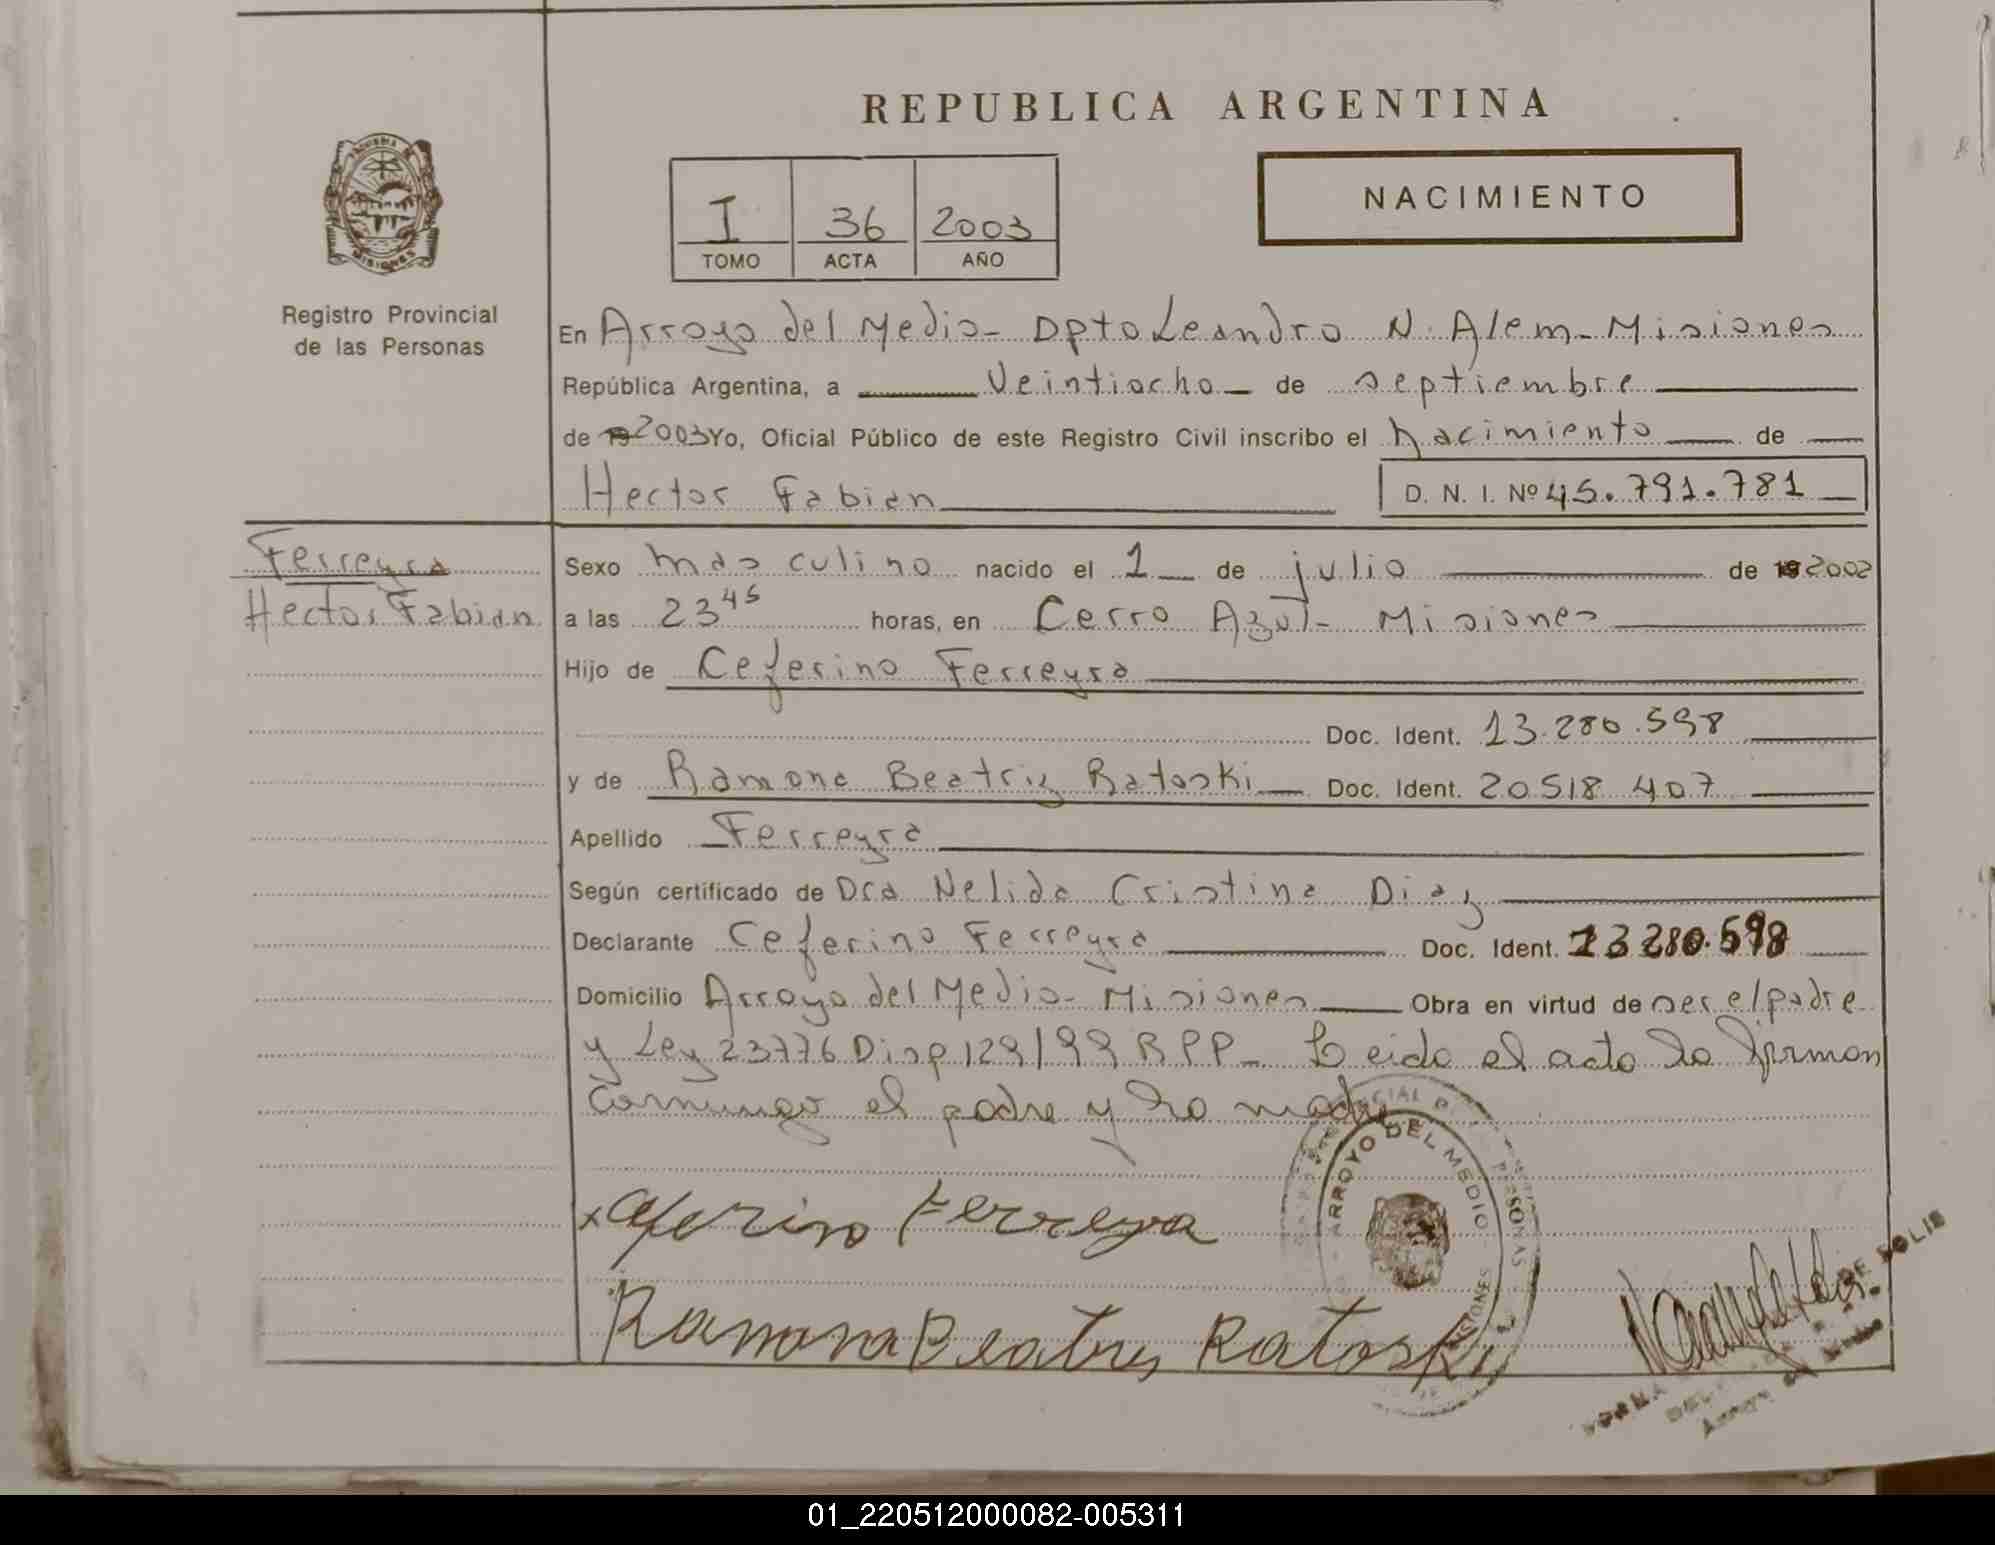 REPUBLICA ARGENTINA
NACIMIENTO
I 36 2003
TOMO ACTA AÑO
MISIONES
Registro Provincial
de las Personas
En Arroyo del Medio - Dpto Leandro N. Alem - Misiones
República Argentina, a Veintiocho de septiembre
de 19 2003 Yo, Oficial Público de este Registro Civil inscribo el nacimiento de
Hector Fabian D. N. I. Nº 45.791.781
Ferreyra
Hector Fabian
Sexo masculino nacido el 1 de julio de 19 2002
a las 23 45 horas, en Cerro Azul - Misiones
Hijo de Ceferino Ferreyra
Doc. Ident. 13.280.598
y de Ramona Beatriz Ratoski Doc. Ident. 20518 407
Apellido Ferreyra
Según certificado de Dra Nelida Cristina Diaz
Declarante Ceferino Ferreyra Doc. Ident. 13 280.598
Domicilio Arroyo del Medio - Misiones Obra en virtud de ser el padre
y Ley 23776 Disp 129/99 RPP - Leida el acta la firman
conmigo el padre y la madre
ARROYO DEL MEDIO
x Ceferino Ferreyra
Ramona Beatriz Ratoski
DE SOLIS
01_220512000082-005311